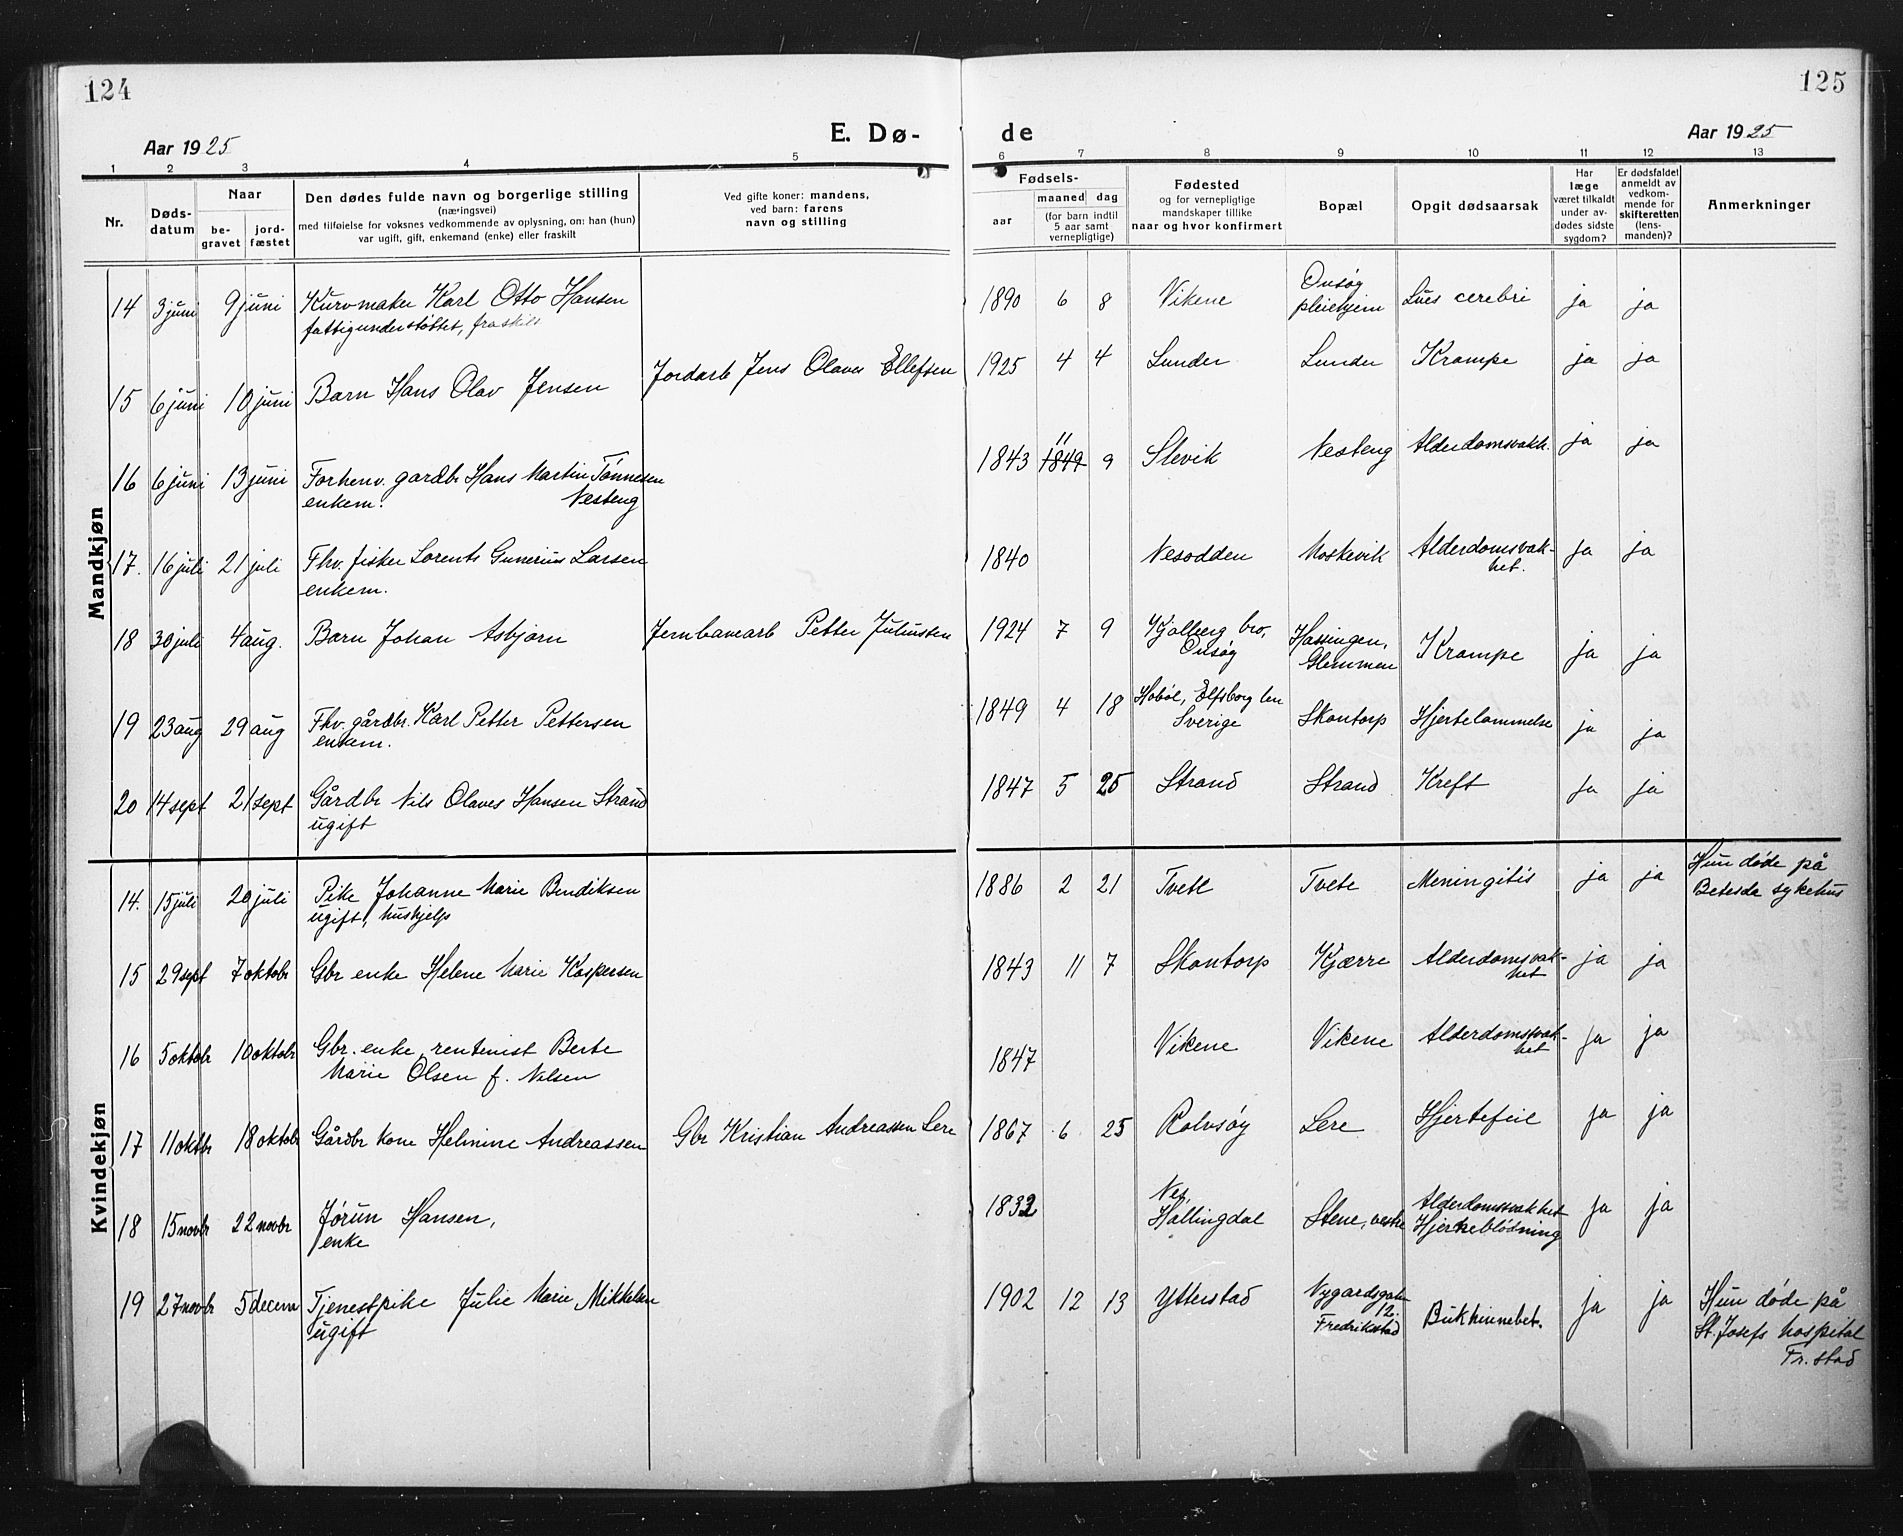 124
125
E. Dø-
de
Aar 1925
Aar 1925
1 2 3 4 5 6 7 8 9 10 11 12 13
Nr.
Døds-
datum
Naar
be-
gravet
jord-
fæstet
Den dødes fulde navn og borgerlige stilling
(næringsvei)
med tilføielse for voksnes vedkommende av oplysning, om: han (hun)
var ugift, gift, enkemand (enke) eller fraskilt
Ved gifte koner: mandens,
ved barn: farens
navn og stilling
Fødsels-
aar
maaned dag
(for barn indtil
5 aar samt
vernepligtige)
Fødested
og for vernepligtige
mandskaper tillike
naar og hvor konfirmert
Bopæl
Opgit dødsaarsak
Har
læge
været tilkaldt
under av-
dødes sidste
sygdom?
Er dødsfaldet
anmeldt av
vedkom-
mende for
skifteretten
(lens-
manden)?
Anmerkninger
Mandkjøn
14 3 juni 9 juni Kurvmaker Karl Otto Hansen
fattigunderstøttet, fraskilt
1890 6 8 Vikene Onsøy
pleiehjem Lues cerebri ja ja
15 6 juni 10 juni Barn Hans Olav Jensen Jordarb Jens Olaves Ellefsen 1925 4 4 Lunder Lunder Krampe ja ja
16 6 juni 13 juni Forhenv. gardbr Hans Martin Tønnesen
enkem. Nesteng
11
1843 1849 9 Slevik Nesteng Alderdomsvakh. ja ja
17. 16 juli 21 juli Fhv. fisker Lorents Gunerius Larsen
enkem.
1840 Nesodden Moskevik Alderdomsvak-
het. ja ja
18 30 juli 4 aug. Barn Johan Asbjørn Jernbanearb Petter Juliussen 1924 7 9 Kjølberg bro,
Onsøy Hassingen,
Glemmen Krampe ja ja
19 23 aug 29 aug Fhv. gårdbr. Karl Petter Pettersen
enkem.
1849 4 18 Hobøl, Elfsborg len
Sverige Skontorp Hjertelammelse ja ja
20 14 sept 21 sept Gårdbr Nils Olaves Hansen Strand
ugift
1847 5 25 Strand Strand Kreft ja ja
Kvindekjøn
14. 15 juli 20 juli Pike Johanne Marie Bendiksen
ugift, hushjelp
1886 2 21 Tvete Tvete Meningitis ja ja Hun døde på
Betesda sykehus
15 29 sept 7 oktobr Gbr enke Helene Marie Kaspersen 1843 11 7 Skontorp Kjærre Alderdomsvak-
het ja ja
16 5 oktobr 10 oktobr Gbr. enke, rentenist Berte
Marie Olsen f. Nilsen
1847 Vikene Vikene Alderdomsvak-
het ja ja
17 11 oktbr 18 oktobr Gårdbr kone Helmine Andreassen Gbr Kristian Andreassen Lere 1867 6 25 Rolvsøy Lere Hjertefeil ja ja
18 15 novbr 22 novbr Jørun Hansen,
enke
1832 Nes,
Hallingdal Stene, vestre Alderdomsvakhet
Hjerneblødning ja ja
19 27 novbr 5 decem Tjenestpike Julie Marie Mikkelsen
ugift
1902 12 13 Ytterstad Nygardsgaten
12.
Fredrikstad Bukhinnebet. ja ja Hun døde på
St. Josefs hospital
Fr. stad